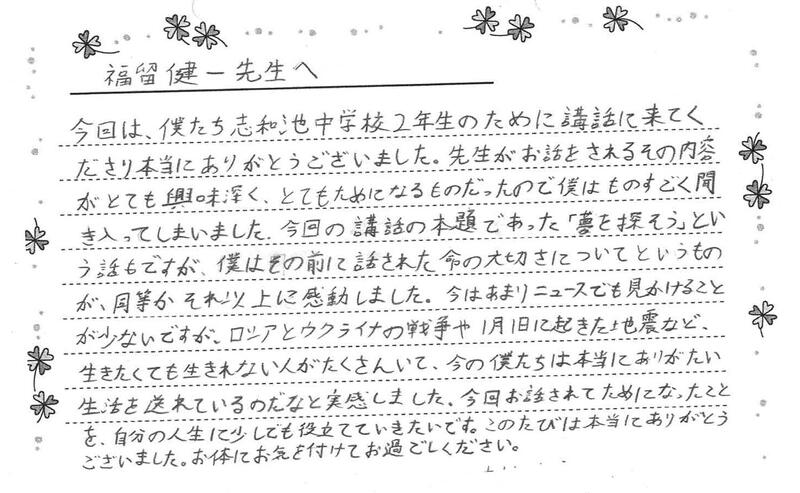 福留健一先生へ
今回は、僕たち志和池中学校2年生のために講話に来てく
ださり本当にありがとうございました。先生がお話をされるその内容
がとても興味深く、とてもためになるものだったので僕はものすごく聞
き入ってしまいました。今回の講話の本題であった「夢を探そう」とい
う話もですが、僕はその前に話された命の大切さについてというもの
が、同等かそれ以上に感動しました。今はあまりニュースでも見かけること
が少ないですが、ロシアとウクライナの戦争や1月1日に起きた地震など、
生きたくても生きれない人がたくさんいて、今の僕たちは本当にありがたい
生活を送れているのだなと実感しました。今回お話されてためになったこと
を、自分の人生に少しでも役立てていきたいです。このたびは本当にありがとう
ございました。お体にお気を付けてお過ごしください。